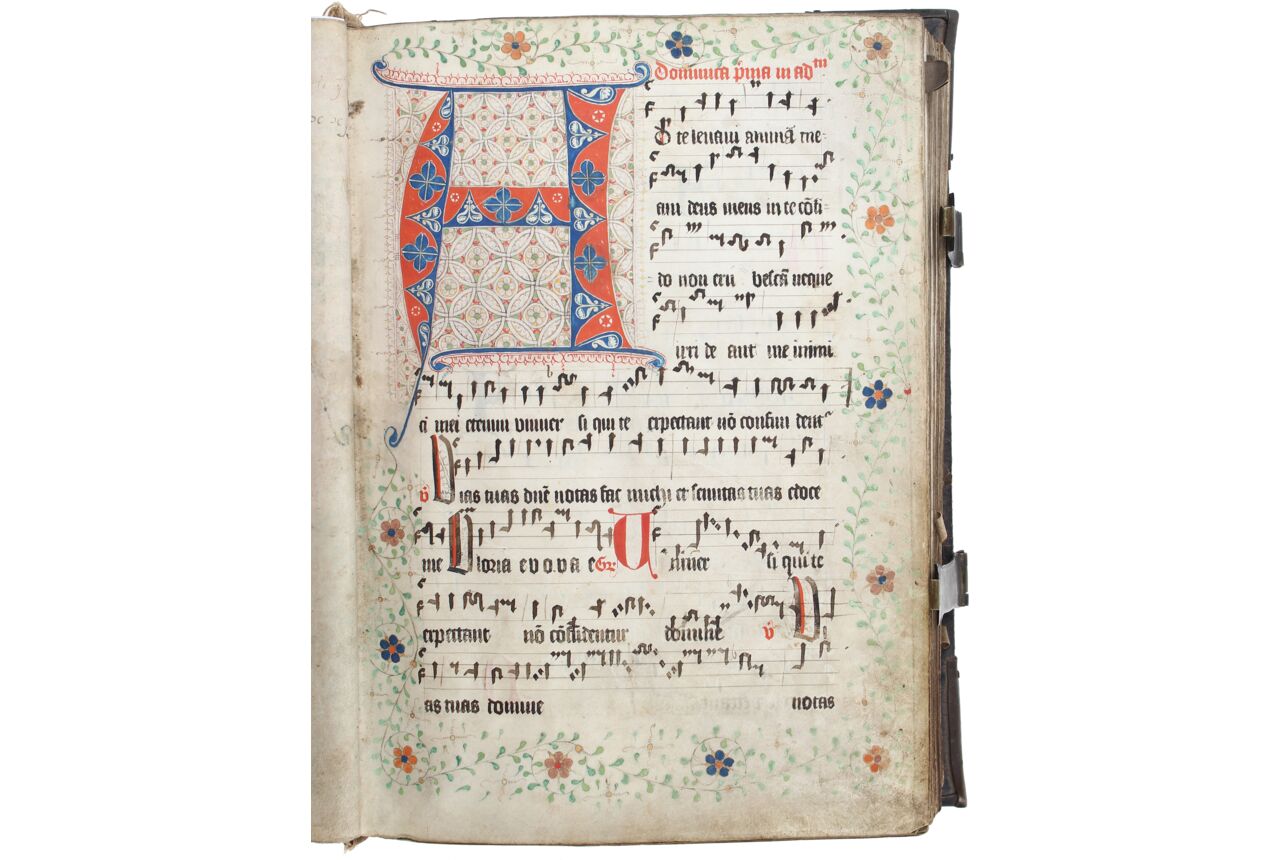 Dominica p̄ma in adtū
A D te levavi animā me
am deus meus in te cōfi
do non eru besca neque
irri de ant me inimi
ci mei etenim univer si qui te expectant nō confun dentr
V̄ Vias tuas dn̄e notas fac michi et semitas tuas edoce
me Gloria e v o v a e Gr̄ U niv̄er si qui te
expectant nō cōfūdentur domine V̄ Vi
as tuas domine notas